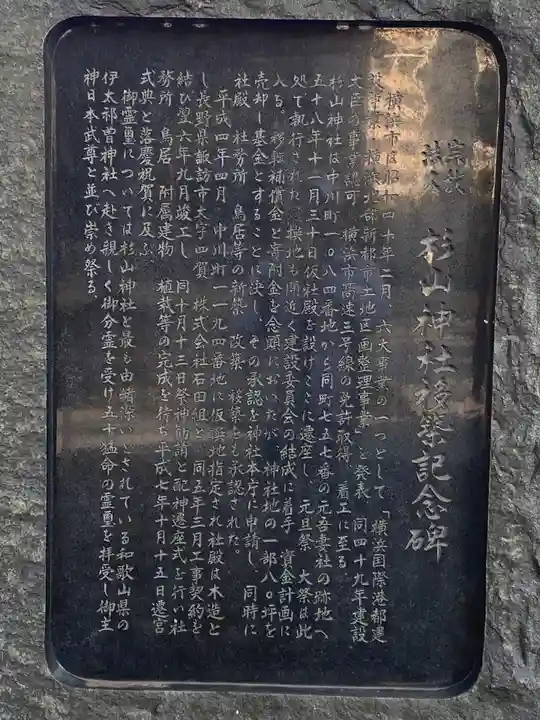 宗教法人 杉山神社移築記念碑
横浜市は昭和四十年二月 六大事業の一つとして「横浜国際港都建
設事業 横浜北部新都市土地区画整理事業」を発表 同四十九年建設
大臣の事業認可 横浜市高速三号線の免許取得 着工に至る
杉山神社は中川町一〇八四番地から同町七五七番の元吾妻社の跡地へ
五十八年十一月三十日仮社殿を設けここに遷座し 元旦祭 大祭は此
処で執行された 換地も間近く建設委員会の結成に着手 資金計画に
入る。移転補償金と寄附金を念頭においたが 神社地の一部八〇坪を
売却し基金とすることに決し、その承認を神社本庁に申請し、同時に
社殿 社務所 鳥居等の新築 改築 移築とも承認された。
平成四年四月 中川町一一九四番地に仮換地指定され社殿は木造と
し長野県諏訪市大字四賀 株式会社石田組と 同五年三月工事契約を
結び翌六年九月竣工し 同十月十三日祭神勧請と配神遷座式を行い社
務所 鳥居 附属建物 植栽等の完成を待ち平成七年十月十五日遷宮
式典と落慶祝賀に及ぶ
御霊璽については杉山神社と最も由緒深いとされている和歌山県の
伊太祁曽神社へ赴き親しく御分霊を受け五十猛命の霊璽を拝受し御主
神日本武尊と並び崇め祭る